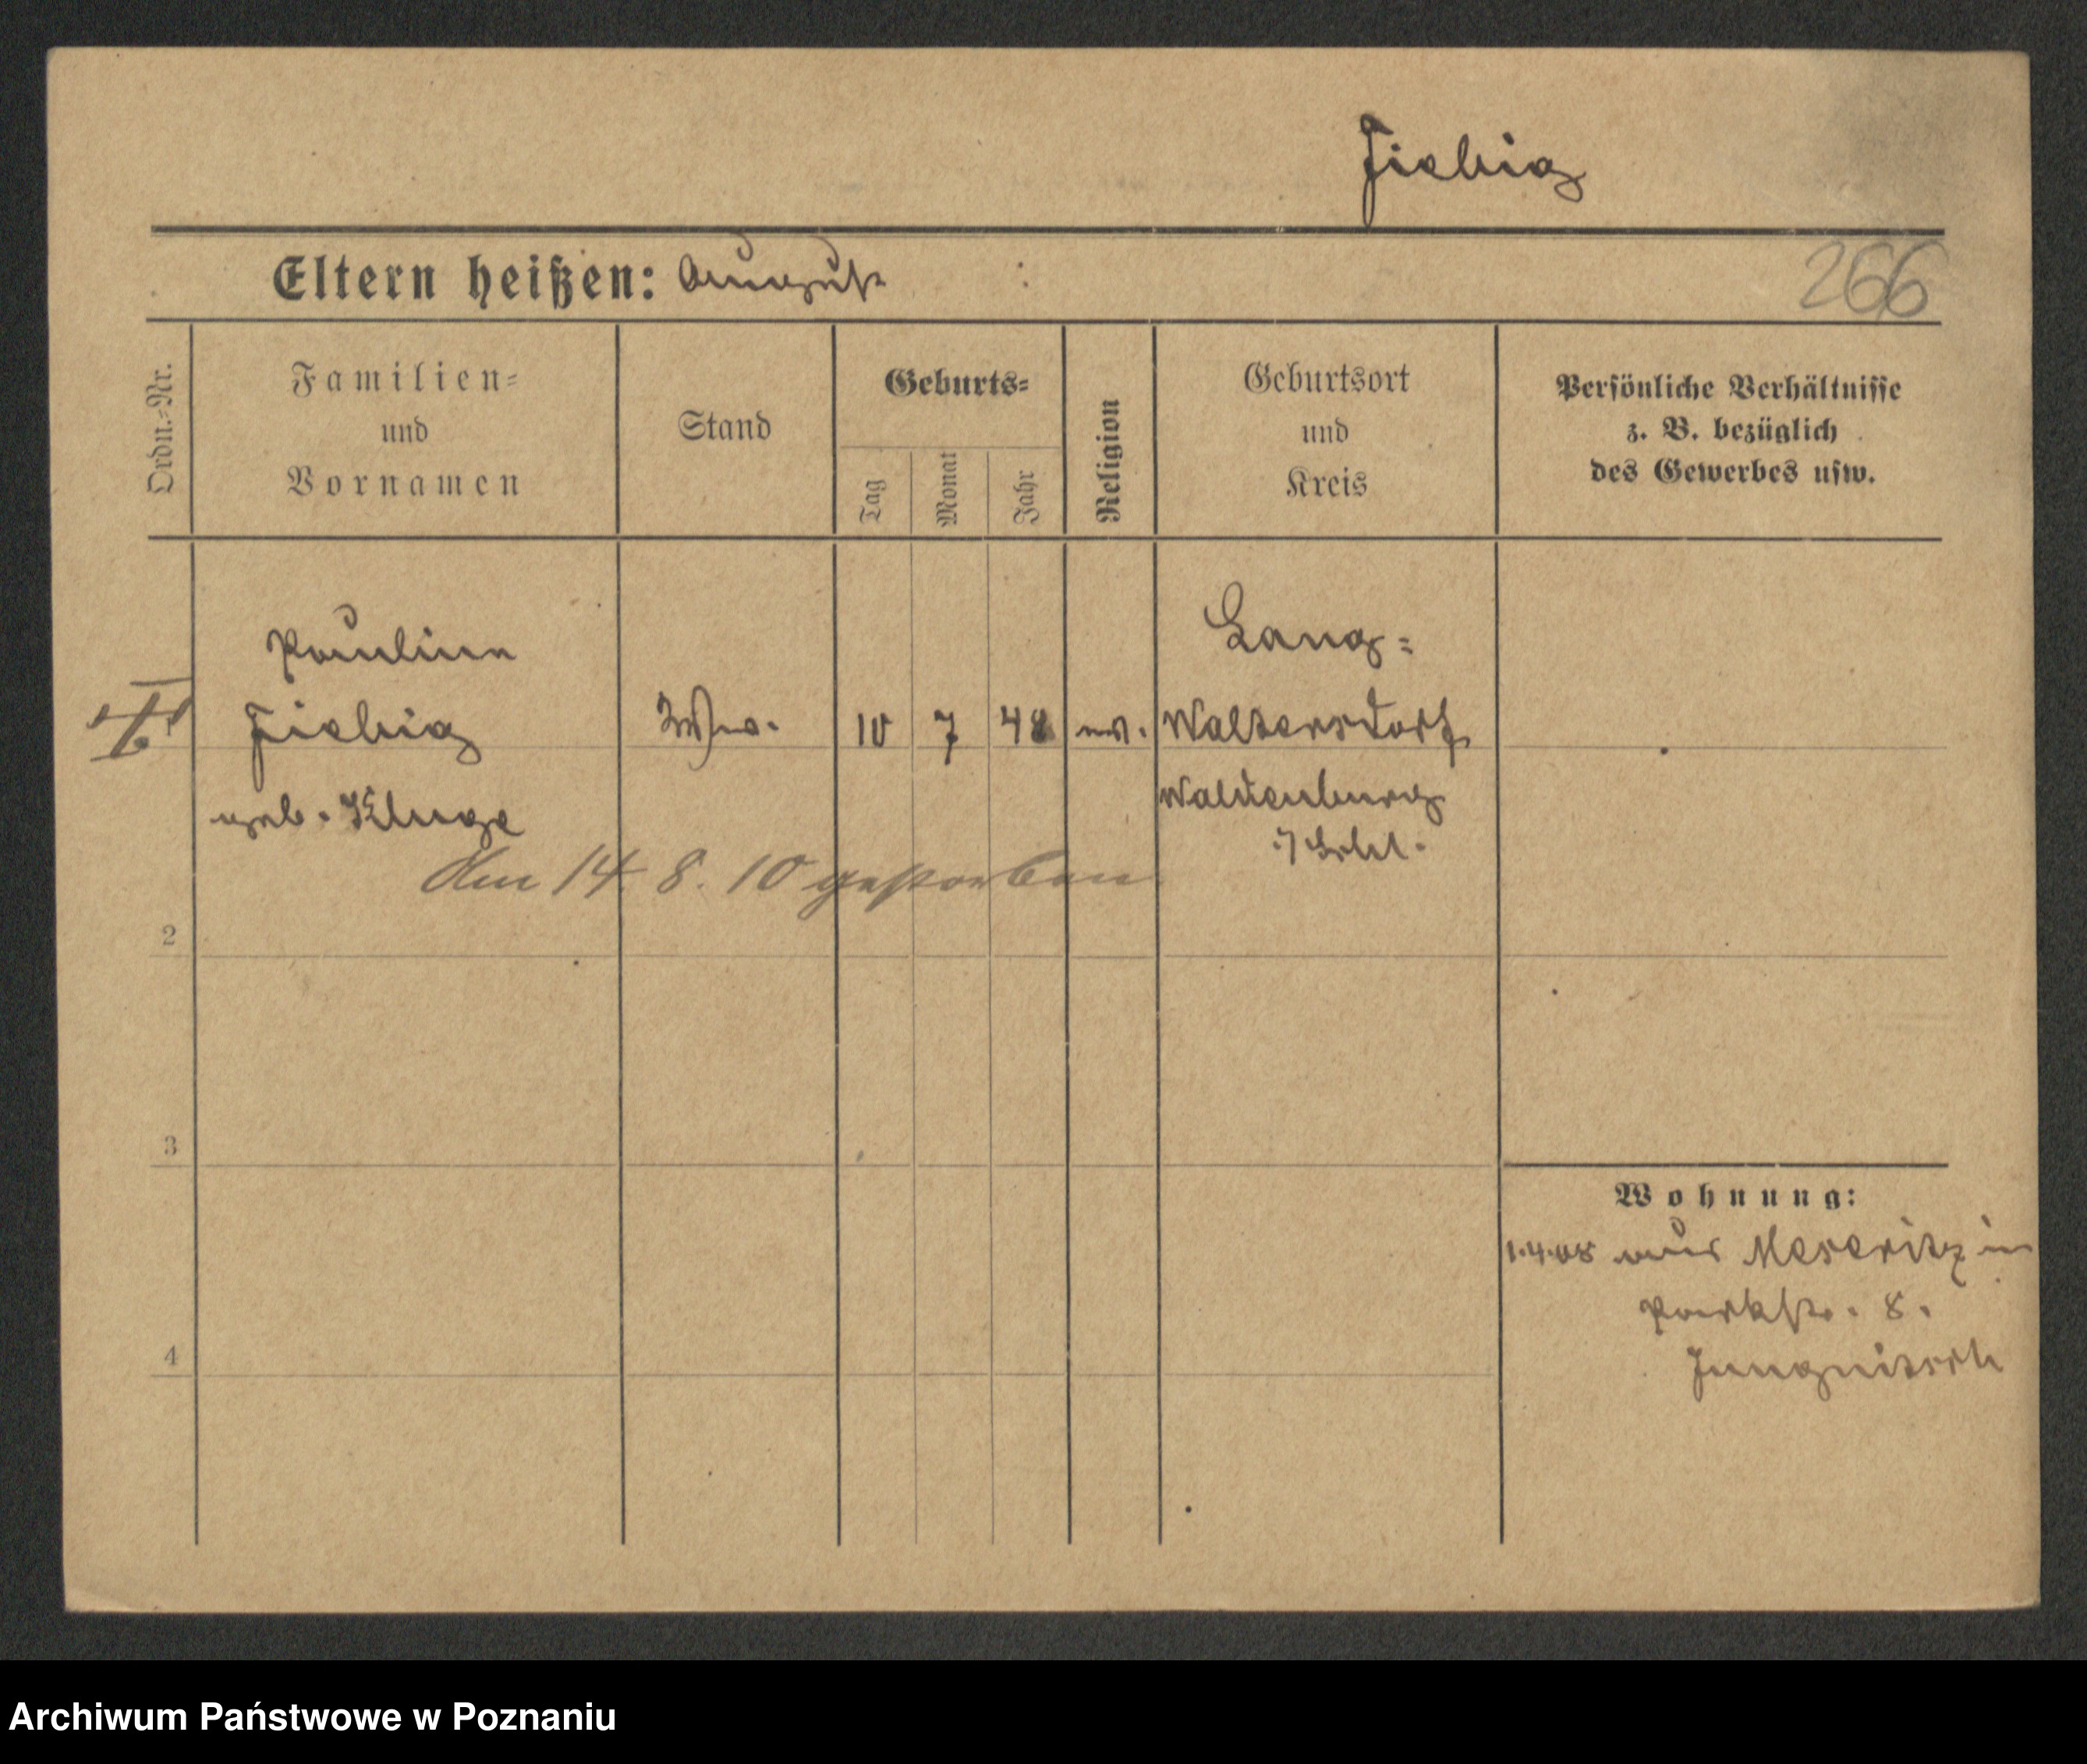 Fiebig
Eltern heißen: August
266
Ordn.-Nr.
Familien-
und
Vornamen
Stand
Geburts-
Tag
Monat
Jahr
Religion
Geburtsort
und
Kreis
Persönliche Verhältnisse
z. B. bezüglich
des Gewerbes usw.
Pauline
Fiebig
geb. Kluge
Ww.
10
7
48
ev.
Lang-
Waltersdorf
Waldenburg
i/Schl.
den 14. 8. 10 gestorben
2
3
4
Wohnung:
1.4.08 aus Meseritz in
Parkstr. 8.
Jungnitsch
Archiwum Państwowe w Poznaniu